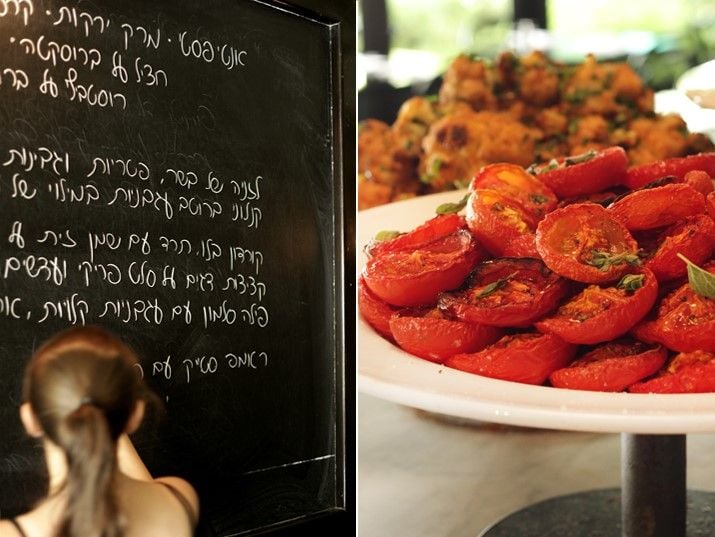 אנטיפסטי · מרק ירקות ·
חציל על ברוסקטה ·
רוסטביף על
לזניה של בשר, פטריות וגבינות
קנלוני ברוטב עגבניות במילוי של
קורדון בלו, תרד עם שמן זית על
קציצות דגים על סלט פריקי ועדשים
פילה סלמון עם עגבניות קלויות,
ראמפ סטייק עם